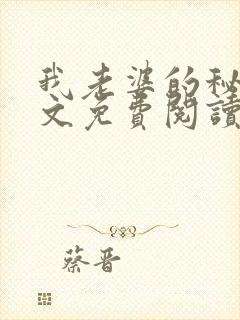 我老婆的秘
文免費閱讀
蔡晋